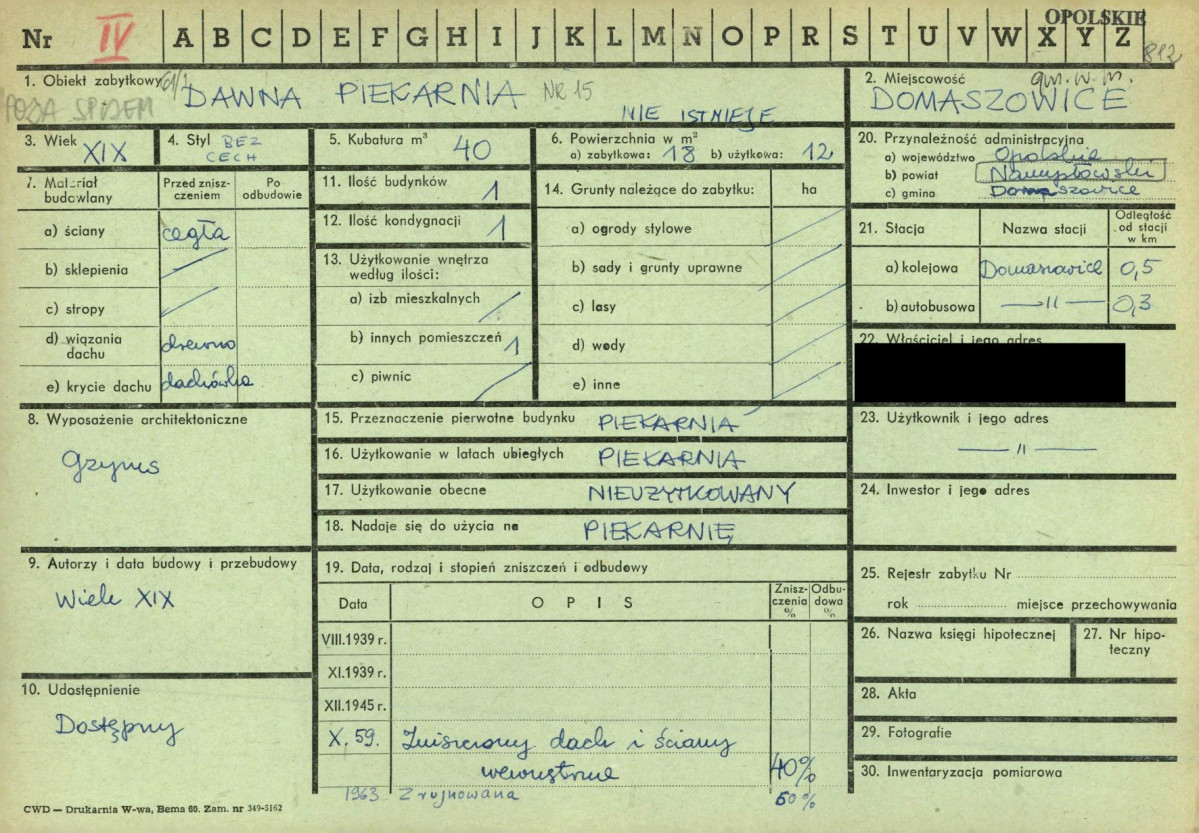 OPOLSKIE
Nr IV A B C D E F G H I J K L M N O P R S T U V W X Y Z
812
1. Obiekt zabytkowy
DAWNA PIEKARNIA NR 15
POZA SPISEM
NIE ISTNIEJE
2. Miejscowość gm. w m.
DOMASZOWICE
3. Wiek XIX
4. Styl BEZ CECH
5. Kubatura m³ 40
6. Powierzchnia w m²
a) zabytkowa: 18 b) użytkowa: 12
20. Przynależność administracyjna
a) województwo Opolskie
b) powiat Namysłowski
c) gmina Domaszowice
7. Materiał budowlany
Przed zniszczeniem
Po odbudowie
a) ściany cegła
b) sklepienia
c) stropy
d) wiązania dachu drewno
e) krycie dachu dachówka
11. Ilość budynków 1
12. Ilość kondygnacji 1
13. Użytkowanie wnętrza
według ilości:
a) izb mieszkalnych
b) innych pomieszczeń 1
c) piwnic
14. Grunty należące do zabytku: ha
a) ogrody stylowe
b) sady i grunty uprawne
c) lasy
d) wody
e) inne
21. Stacja Nazwa stacji Odległość od stacji w km
a) kolejowa Domaszowice 0,5
b) autobusowa — 11 — 0,3
22. Właściciel i jego adres
8. Wyposażenie architektoniczne
Gzyms
15. Przeznaczenie pierwotne budynku PIEKARNIA
16. Użytkowanie w latach ubiegłych PIEKARNIA
17. Użytkowanie obecne NIEUŻYTKOWANY
18. Nadaje się do użycia na PIEKARNIĘ
23. Użytkownik i jego adres
— 11 —
24. Inwestor i jego adres
9. Autorzy i data budowy i przebudowy
Wiek XIX
19. Data, rodzaj i stopień zniszczeń i odbudowy
Data OPIS Zniszczenia % Odbudowa %
VIII.1939 r.
XI.1939 r.
XII.1945 r.
X. 59. Zniszczony dach i ściany
wewnętrzne 40%
1963 Zrujnowana 50%
25. Rejestr zabytku Nr
rok miejsce przechowywania
26. Nazwa księgi hipotecznej
27. Nr hipoteczny
10. Udostępnienie
Dostępny
28. Akta
29. Fotografie
30. Inwentaryzacja pomiarowa
CWD — Drukarnia W-wa, Bema 60. Zam. nr 349-5162